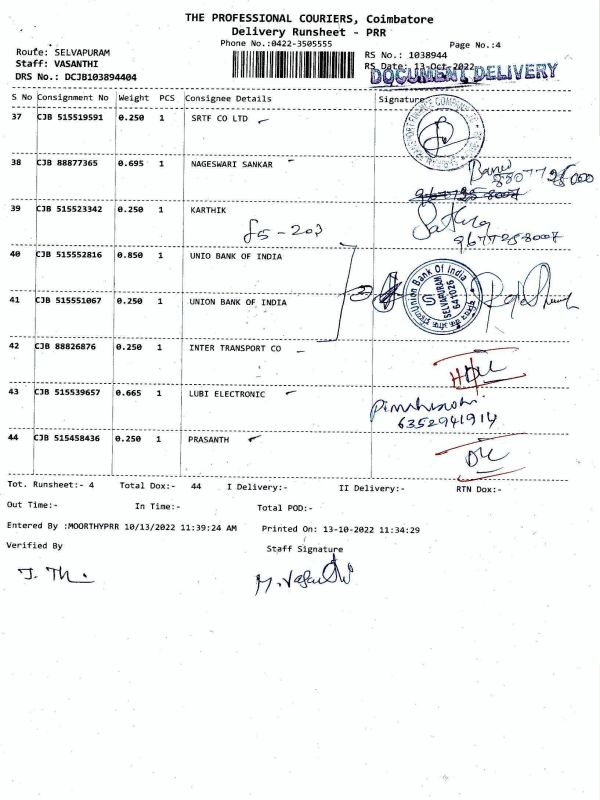 THE PROFESSIONAL COURIERS, Coimbatore
Delivery Runsheet - PRR
Phone No.:0422-3505555
Page No.:4
Route: SELVAPURAM
RS No.: 1038944
Staff: VASANTHI
RS Date: 13-Oct-2022
DRS No.: DCJB103894404
DOCUMENT DELIVERY
S No Consignment No Weight PCS Consignee Details Signature
37 CJB 515519591 0.250 1 SRTF CO LTD
38 CJB 88877365 0.695 1 NAGESWARI SANKAR
39 CJB 515523342 0.250 1 KARTHIK
9677958007
40 CJB 515552816 0.850 1 UNIO BANK OF INDIA
Union Bank Of India
SELVAPURAM
641026
41 CJB 515551067 0.250 1 UNION BANK OF INDIA
42 CJB 88826876 0.250 1 INTER TRANSPORT CO
43 CJB 515539657 0.665 1 LUBI ELECTRONIC
6352941914
44 CJB 515458436 0.250 1 PRASANTH
Tot. Runsheet:- 4 Total Dox:- 44 I Delivery:- II Delivery:- RTN Dox:-
Out Time:- In Time:- Total POD:-
Entered By :MOORTHYPRR 10/13/2022 11:39:24 AM Printed On: 13-10-2022 11:34:29
Verified By Staff Signature
M. Vasanthi